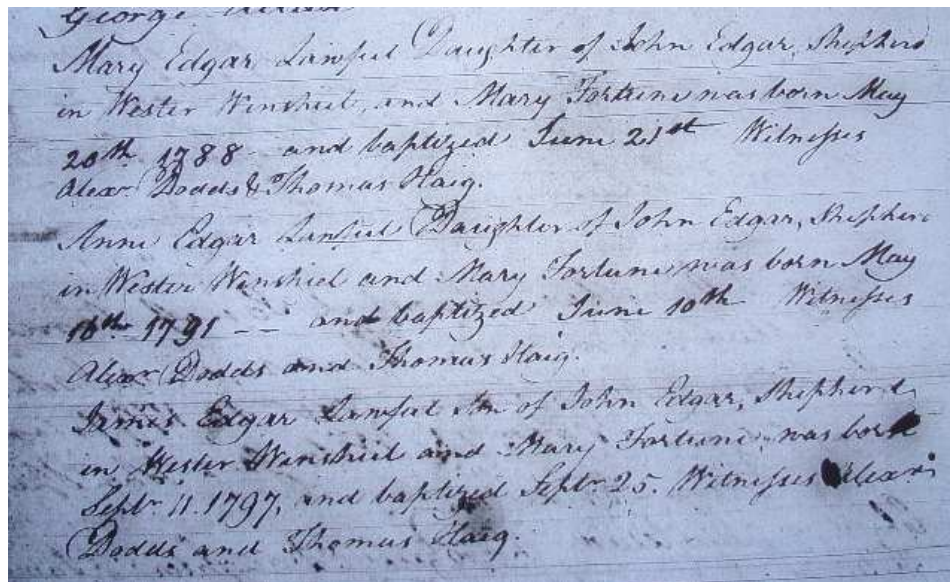 George
Mary Edgar Lawful Daughter of John Edgar, Shepherd
in Wester Winshiel, and Mary Fortune was born May
20th 1788 - and baptized June 21st Witnesses
Alexr. Dodds & Thomas Haig.
Anne Edgar Lawful Daughter of John Edgar, Shepherd
in Wester Winshiel and Mary Fortune was born May
16th 1791 - - and baptized June 10th Witnesses
Alexr Dodds and Thomas Haig.
James Edgar Lawful Son of John Edgar, Shepherd,
in Wester Winshiel and Mary Fortune, was born
Septr 11. 1797, and baptized Septr 25. Witnesses Alexr
Dodds and Thomas Haig.